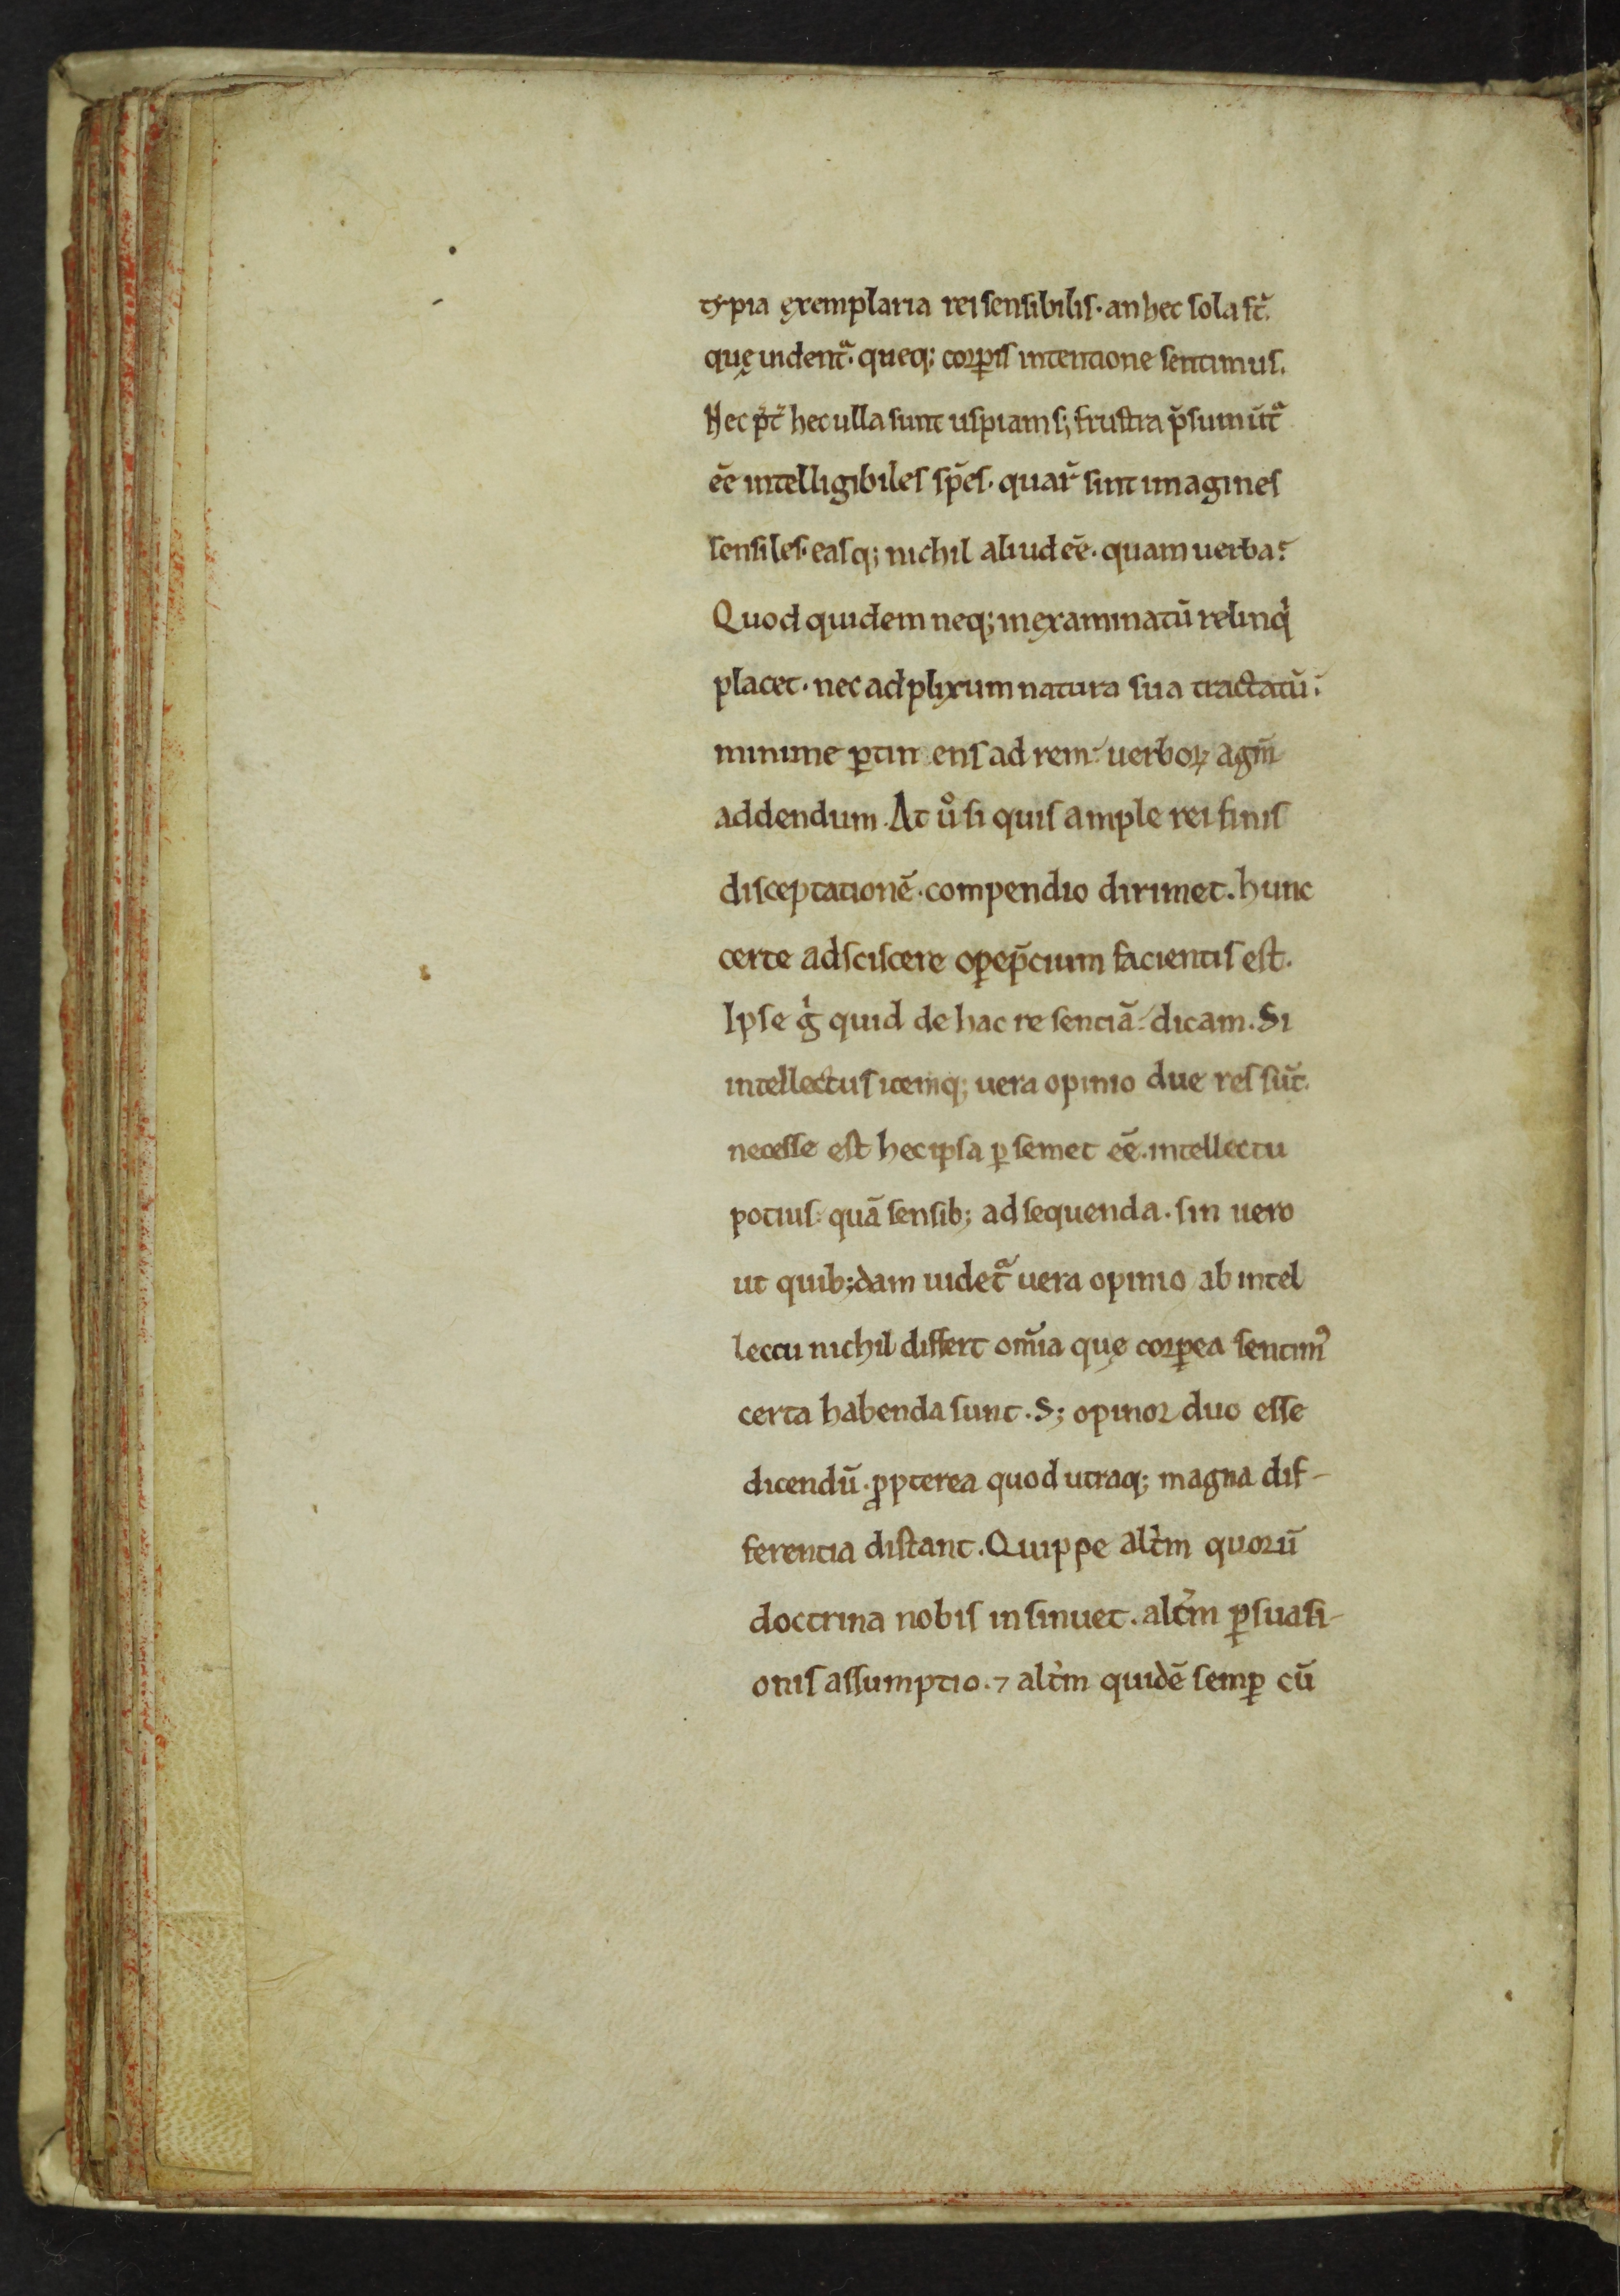 typia ęxemplaria rei sensibilis. an hec sola st̄.
quę uident᷑. queq; corꝑis intentione sentimus.
Nec p̄t hec ulla sunt uspiam s; frustra p̄sumit᷑
ēē intelligibiles sp̄es. quar̄ sint imagines
sensiles. easq; nichil aliud ēē. quam uerba?
Quod quidem neq; inęxaminatū relinq̇
placet. nec ad plixum natura sua tractatū.
minime ꝑtinens ad rem. uerboꝝ agm̄
addendum. At uͦ si quis ample rei finis
disceptationē. compendio dirimet. hunc
certe adsciscere oꝑep̄cium facientis est.
Ipse gͥ quid de hac re senciā. dicam. Si
intellectus itemq; uera opinio due res sūt.
necesse est hec ipsa ꝑ semet ēē. intellectu
potius. quā sensib; adsequenda. sin uero
ut quib;dam uidet᷑ uera opinio ab intel
lectu nichil differt om̄ia quę corꝑea sentimꝰ
certa habenda sunt. S; opinor duo esse
dicendū. ꝓpterea quod utraq; magna dif-
ferentia distant. Quippe alt̄m quorū
doctrina nobis insinuet. alt̄m ꝑsuasi-
onis assumptio. ⁊ alt̄m quidē semꝑ cū